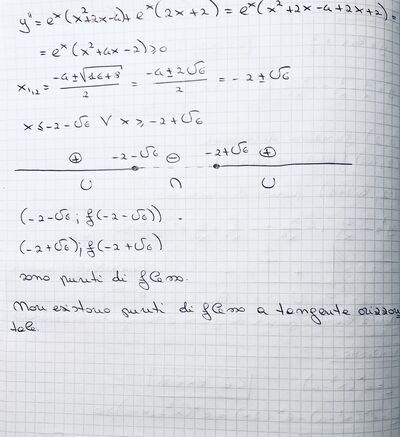 y'' = eˣ(x²+2x-4) + eˣ(2x+2) = eˣ(x²+2x-4+2x+2) =
= eˣ(x²+4x-2) ≥ 0
x₁,₂ = (-4±√16+8)/2 = (-4±2√6)/2 = -2±√6
x ≤ -2-√6 ∨ x ≥ -2+√6
⊕ -2-√6 ⊖ -2+√6 ⊕
∪ ∩ ∪
(-2-√6; f(-2-√6)) .
(-2+√6); f(-2+√6)
sono punti di flesso.
Non esistono punti di flesso a tangente orizzon
tale.